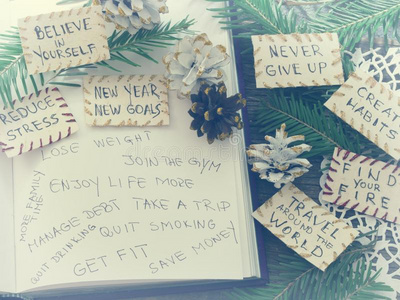 BELIEVE
IN
YOURSELF
NEW YEAR
NEW GOALS
REDUCE
STRESS
NEVER
GIVE UP
CREATE
HABITS
FIND
YOUR
FIRE
TRAVEL
AROUND
THE
WORLD
LOSE WEIGHT
JOIN THE GYM
ENJOY LIFE MORE
MORE FAMILY
TIME
MANAGE DEBT
TAKE A TRIP
QUIT DRINKING
QUIT SMOKING
GET FIT
SAVE MONEY